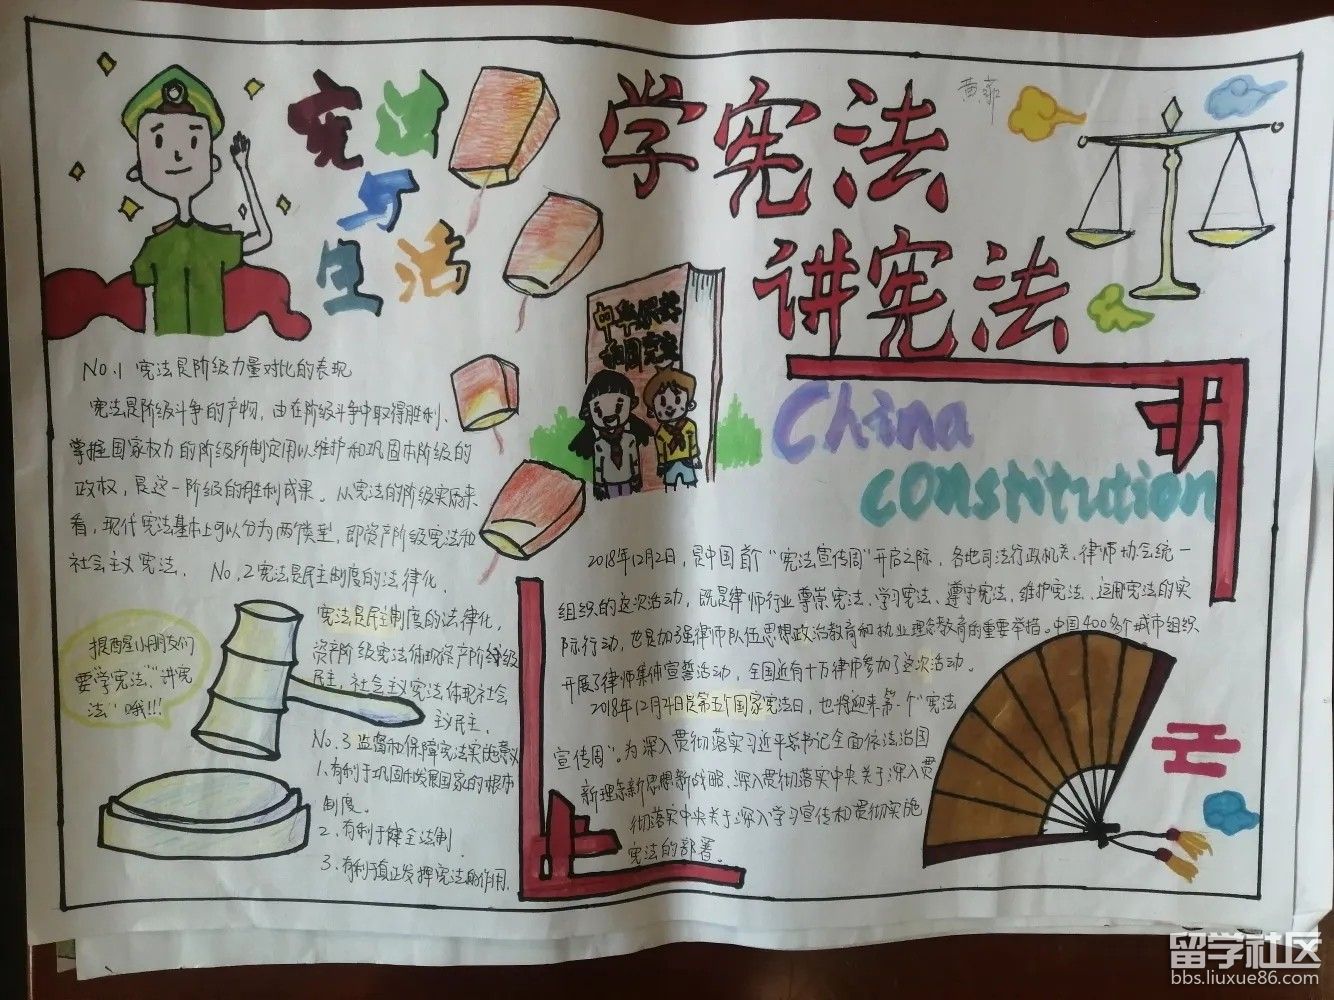 宪法
与
生活
学宪法
讲宪法
黄菲
中华人民
共和国宪法
China
constitution
No.1 宪法是阶级力量对比的表现
宪法是阶级斗争的产物，由在阶级斗争中取得胜利、
掌握国家权力的阶级所制定用以维护和巩固本阶级的
政权，是这一阶级的胜利成果。从宪法的阶级实质来
看，现代宪法基本上可以分为两个类型，即资产阶级宪法和
社会主义宪法。
No.2 宪法是民主制度的法律化。
宪法是民主制度的法律化，
资产阶级宪法体现资产阶级
民主，社会主义宪法体现社会
主义民主。
提醒小朋友们
要"学宪法""讲宪
法"哦!!!
No.3 监督和保障宪法实施意义
1.有利于巩固和发展国家的根本
制度。
2.有利于健全法制.
3.有利于真正发挥宪法的作用.
2018年12月2日，是中国首个"宪法宣传周"开启之际，各地司法行政机关、律师协会统一
组织的这次活动，既是律师行业尊崇宪法、学习宪法、遵守宪法、维护宪法、运用宪法的实
际行动，也是加强律师队伍思想政治教育和执业理念教育的重要举措。中国400多个城市组织
开展了律师集体宣誓活动，全国近有十万律师参加了这次活动。
2018年12月4日是第五个国家宪法日，也将迎来第一个"宪法
宣传周"。为深入贯彻落实习近平总书记全面依法治国
新理念新思想新战略、深入贯彻落实中央关于深入贯
彻落实中央关于深入学习宣传和贯彻实施
宪法的部署。
留学社区
bbs.liuxue86.com